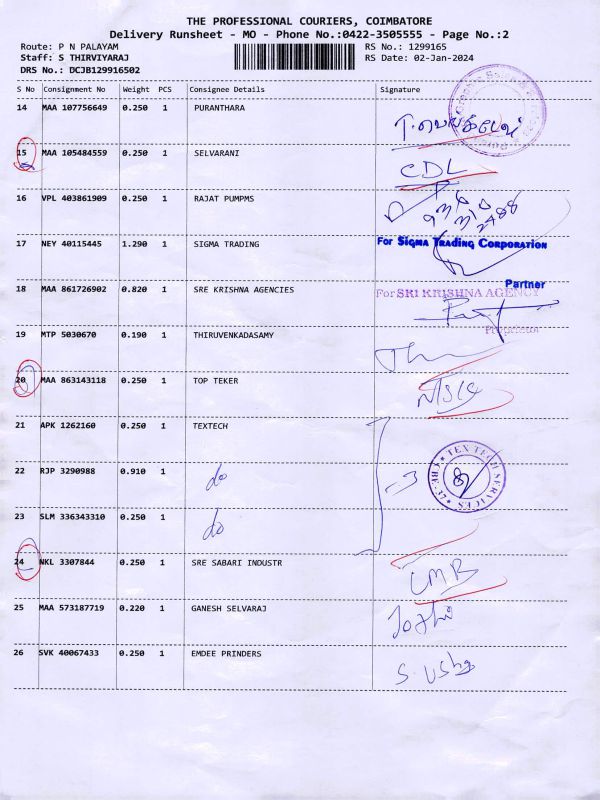 THE PROFESSIONAL COURIERS, COIMBATORE
Delivery Runsheet - MO - Phone No.:0422-3505555 - Page No.:2
Route: P N PALAYAM RS No.: 1299165
Staff: S THIRVIYARAJ RS Date: 02-Jan-2024
DRS No.: DCJB129916502
S No Consignment No Weight PCS Consignee Details Signature
14 MAA 107756649 0.250 1 PURANTHARA
15 MAA 105484559 0.250 1 SELVARANI CDL
16 VPL 403861909 0.250 1 RAJAT PUMPMS
17 NEY 40115445 1.290 1 SIGMA TRADING For SIGMA TRADING CORPORATION
Partner
18 MAA 861726902 0.820 1 SRE KRISHNA AGENCIES For SRI KRISHNA AGENCY
Proprietor
19 MTP 5030670 0.190 1 THIRUVENKADASAMY
20 MAA 863143118 0.250 1 TOP TEKER
21 APK 1262160 0.250 1 TEXTECH
TEX TECH SERVICES
22 RJP 3290988 0.910 1 do 3
23 SLM 336343310 0.250 1 do
24 NKL 3307844 0.250 1 SRE SABARI INDUSTR CMB
25 MAA 573187719 0.220 1 GANESH SELVARAJ Jothi
26 SVK 40067433 0.250 1 EMDEE PRINDERS S. Usha